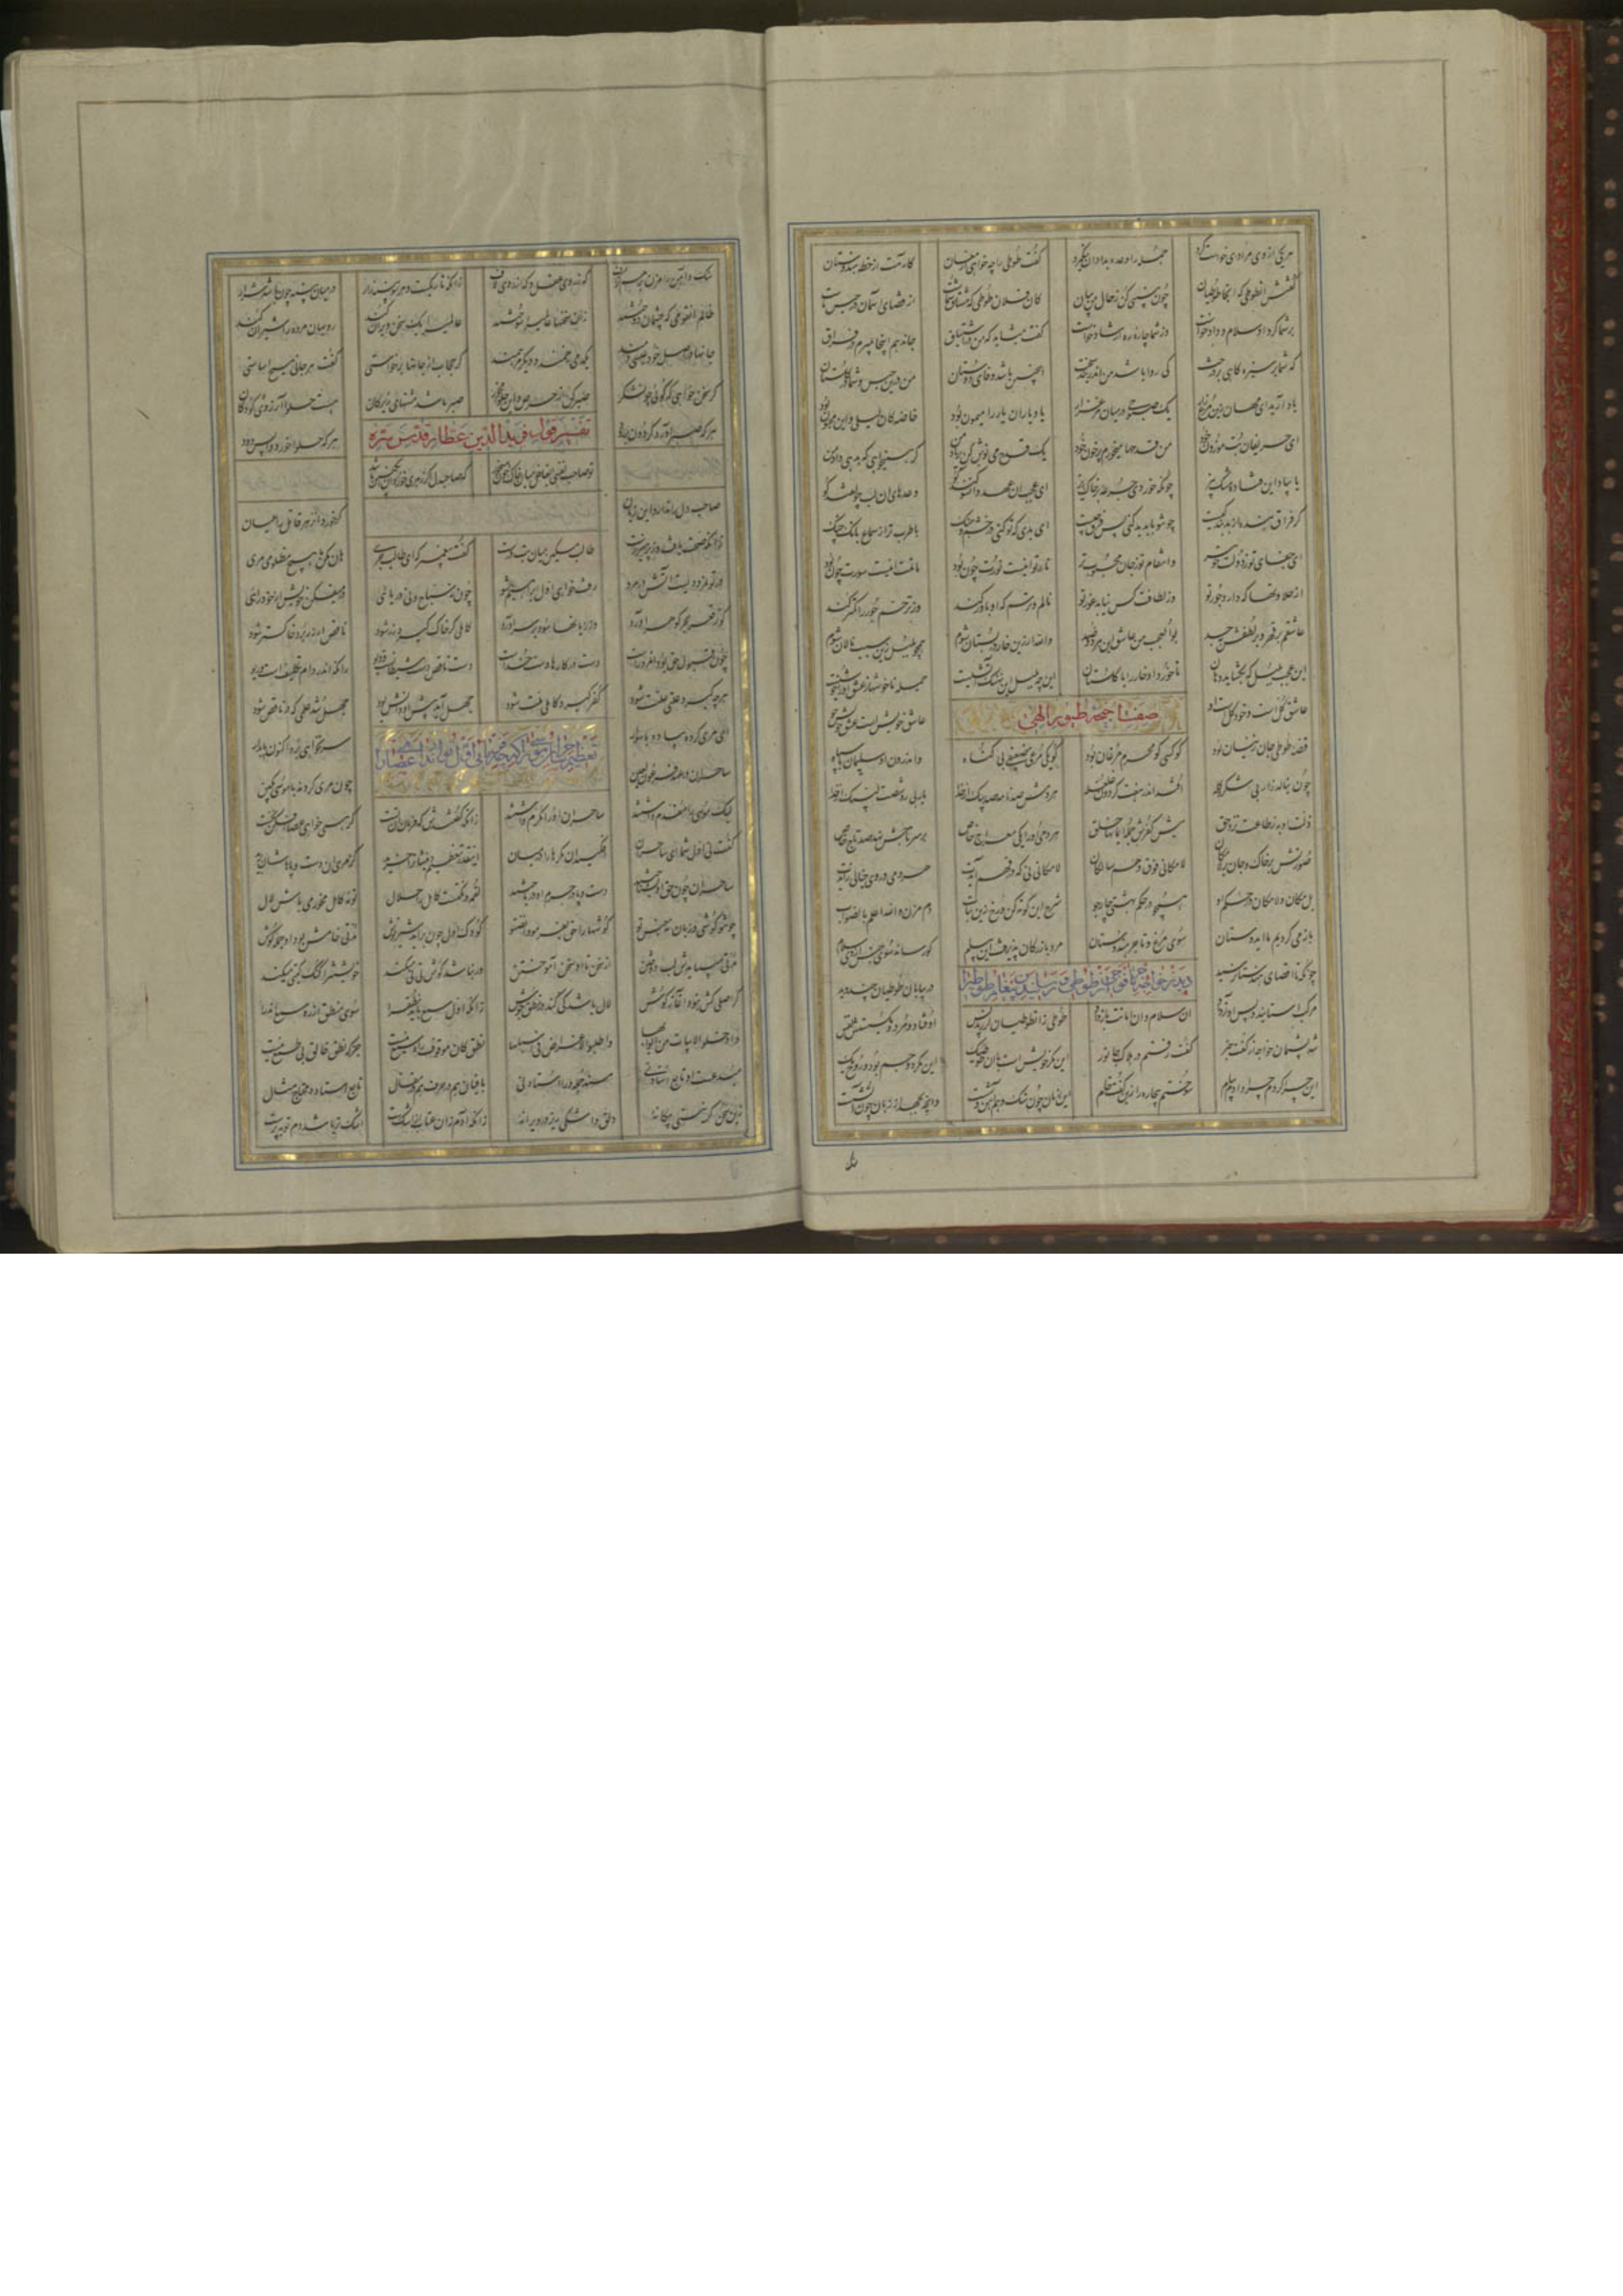 هریکی از وی مرادی خواست کرد جمله را وعده بداد آن نیکمرد گفت طوطی را چه خواهی ارمغان کارمت از خطه هندوستان
گفتش آن طوطی که آنجا طوطیان چون ببینی کن ز حال من بیان کان فلان طوطی که مشتاق شماست از قضای آسمان در حبس ماست
بر شما کرد او سلام و داد خواست وز شما چاره و ره ارشاد خواست گفت میشاید که من در اشتیاق جان دهم اینجا بمیرم در فراق
این روا باشد که من در بند سخت
که شما بر سبزه گاهی بر درخت کی روا باشد من اندر بند سخت اینچنین باشد وفای دوستان من درین حبس و شما در گلستان
یاد آرید ای مهان زین مرغ زار یک صبوحی در میان مرغزار یاد یاران یار را میمون بود خاصه کان لیلی و این مجنون بود
ای حریفان بت موزون خود من قدحها میخورم پر خون خود یک قدح می نوش کن بر یاد من گر نمیخواهی که بدهی داد من
یا بیاد این فتاده خاک بیز چونکه خوردی جرعه بر خاک ریز ای عجب آن عهد و آن سوگند کو وعدهای آن لب چون قند کو
گر فراق بنده از بد بندگیست چون تو با بد بد کنی پس فرق چیست ای بدی که تو کنی در خشم و جنگ با طرب تر از سماع بانک چنگ
ای جفای تو ز دولت خوبتر و انتقام تو ز جان محبوبتر نار تو اینست نورت چون بود ماتمت اینست سورت چون بود
از حلاوتها که دارد جور تو وز لطافت کس نیابد غور تو نالم و ترسم که او باور کند وز ترحم جور را کمتر کند
عاشقم بر قهر و بر لطفش بجد بوالعجب من عاشق این هر دو ضد والله ار زین خار در بستان شوم همچو بلبل زین سبب نالان شوم
این عجب بلبل که بگشاید دهان تا خورد او خار را با گلستان این چه بلبل این نهنگ آتشیست جمله ناخوشها ز عشق او را خوشیست
عاشق کل است و خود کل است او عاشق خویش است و عشق خویش جو
صفت اجنحه طیور الهی
قصه طوطی جان زینسان بود کو کسی کو محرم مرغان بود کو یکی مرغی ضعیفی بی گناه و اندرون او سلیمان با سپاه
چون بنالد زار بی شکر و گله افتد اندر هفت گردون غلغله هر دمش صد نامه صد پیک از خدا یا ربی زو شصت لبیک از خدا
زلت او به ز طاعت نزد حق پیش کفرش جمله ایمانها خلق هر دمی او را یکی معراج خاص بر سر تاجش نهد صد تاج خاص
صورتش بر خاک و جان بر لامکان لامکانی فوق وهم سالکان لامکانی نی که در فهم آیدت هر دمی در وی خیالی زایدت
بل مکان و لامکان در حکم او همچو در حکم بهشتی چار جو شرح این کوته کن و رخ زین بتاب دم مزن والله اعلم بالصواب
باز می گردیم ما ای دوستان سوی مرغ و تاجر هندوستان مرد بازرگان پذیرفت این سلام کو رساند سوی جنس از وی سلام
دیدن خواجه طوطی و رسانیدن پیغام طوطی را
چونکه تا اقصای هندستان رسید در بیابان طوطیان چندی بدید
مرکب استانید و پس آواز داد آن سلام و آن امانت باز داد طوطی زان طوطیان لرزید بس اوفتاد و مرد و بگسستش نفس
شد پشیمان خواجه از گفت خبر گفت رفتم در هلاک جانور این مگر خویش است با آن طوطیک این مگر دو جسم بود و روح یک
این چرا کردم چرا دادم پیام سوختم بیچاره را زین گفت خام این زبان چون سنگ و هم آهن وشست و آنچه بجهد از زبان چون آتشست
سنگ و آهن را مزن بر هم گزاف گه ز روی نقل و گه از روی لاف زانکه تاریکست و هر سو پنبه زار در میان پنبه چون باشد شرار
ظالم آن قومی که چشمان دوختند زان سخنها عالمی را سوختند عالمی را یک سخن ویران کند روبهان مرده را شیران کند
جانها در اصل خود عیسی دمند یکدمی زخمند و دیگر مرهمند گر حجاب از جانها برخاستی گفت هر جانی مسیح آساستی
گر سخن خواهی که گوئی چون شکر صبر کن از حرص و این حلوا مخور صبر باشد مشتهای زیرکان هست حلوا آرزوی کودکان
هر که صبر آورد گردون بر رود هر که حلوا خورد واپس رود
تفسیر قول فرید الدین عطار قدس سره
تو صاحب نفسی ای غافل میان خاک خون میخور که صاحبدل اگر زهری خورد آن انگبین باشد
صاحب دل را ندارد این زیان گر خورد او زهر قاتل را عیان
زانکه صحت یافت و از پرهیز رست طالب مسکین میان تب درست گفت پیغمبر که ای طالب جری هان مکن با هیچ مطلوبی مری
در تو نمرودیست آتش در مرو رفت خواهی اول ابراهیم شو چون نه سباح و نی دریائی در میفکن خویش از خود رائی
کو ز قعر بحر گوهر آورد وز زیانها سود بر سر آورد کاملی گر خاک گیرد زر شود ناقص ار زر برد خاکستر شود
چون قبول حق بود آن مرد راست دست در کارها دست خداست دست ناقص دست شیطانست و دیو زانکه اندر دام تکلیفست و ریو
هرچه گیرد علتی علت شود کفر گیرد کاملی ملت شود جهل آید پیش او دانش بود جهل شد علمی که در ناقص شود
ای مری کرده پیاده با سوار سر نخواهی برد اکنون پای دار
تعظیم ساحران موسی را که چه میفرمائی اول تو اندازی عصا را
ساحران در عهد فرعون لعین چون مری کردند با موسی بکین
لیک موسی را مقدم داشتند ساحران او را مکرم داشتند زانکه گفتندش که فرمان آن تست گر همی خواهی عصا بفکن نخست
گفت نی اول شما ای ساحران افکنید آن مکرها را در میان اینقدر تعظیم دینشان را خرید کز مری آن دست و پاهاشان برید
ساحران چون حق او بشناختند دست و پا در جرم او درباختند لقمه و نکته است کامل را حلال تو نه کامل مخور می باش لال
چون تو گوشی او زبان نی جنس تو گوشها را حق بفرمود انصتوا کودک اول چون بزاید شیر نوش مدتی خامش بود او جمله گوش
مدتی میبایدش لب دوختن از سخن تا او سخن آموختن ور نباشد گوش و تی تی میکند خویشتن را گنگ گیتی میکند
کر اصلی کش نبود آغاز گوش لال باشد کی کند در نطق جوش زانکه اول سمع باید نطق را سوی منطق از ره سمع اندرا
وادخلوا الابیات من ابوابها واطلبوا الاغراض فی اسبابها نطق کان موقوف راه سمع نیست جز که نطق خالق بی طمع نیست
مبدعست او تابع استاد نی مسند جمله ورا اسناد نی باقیان هم در حرف هم در مقال تابع استاد و محتاج مثال
زین سخن گر نیستی بیگانه دلق و اشکی گیر در ویرانه زانکه آدم زان عتاب از اشک رست اشک تر باشد دم توبه پرست